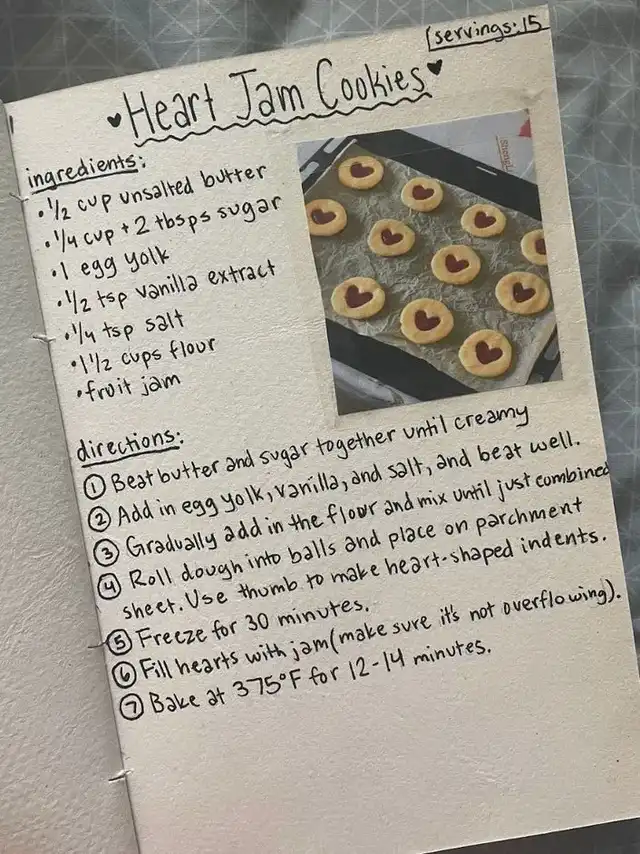 servings: 15
♥Heart Jam Cookies♥
ingredients:
• 1/2 cup unsalted butter
• 1/4 cup + 2 tbsps sugar
• 1 egg yolk
• 1/2 tsp vanilla extract
• 1/4 tsp salt
• 1 1/2 cups flour
• fruit jam
directions:
① Beat butter and sugar together until creamy
② Add in egg yolk, vanilla, and salt, and beat well.
③ Gradually add in the flour and mix until just combined
④ Roll dough into balls and place on parchment
sheet. Use thumb to make heart-shaped indents.
⑤ Freeze for 30 minutes.
⑥ Fill hearts with jam (make sure it's not overflowing).
⑦ Bake at 375°F for 12-14 minutes.